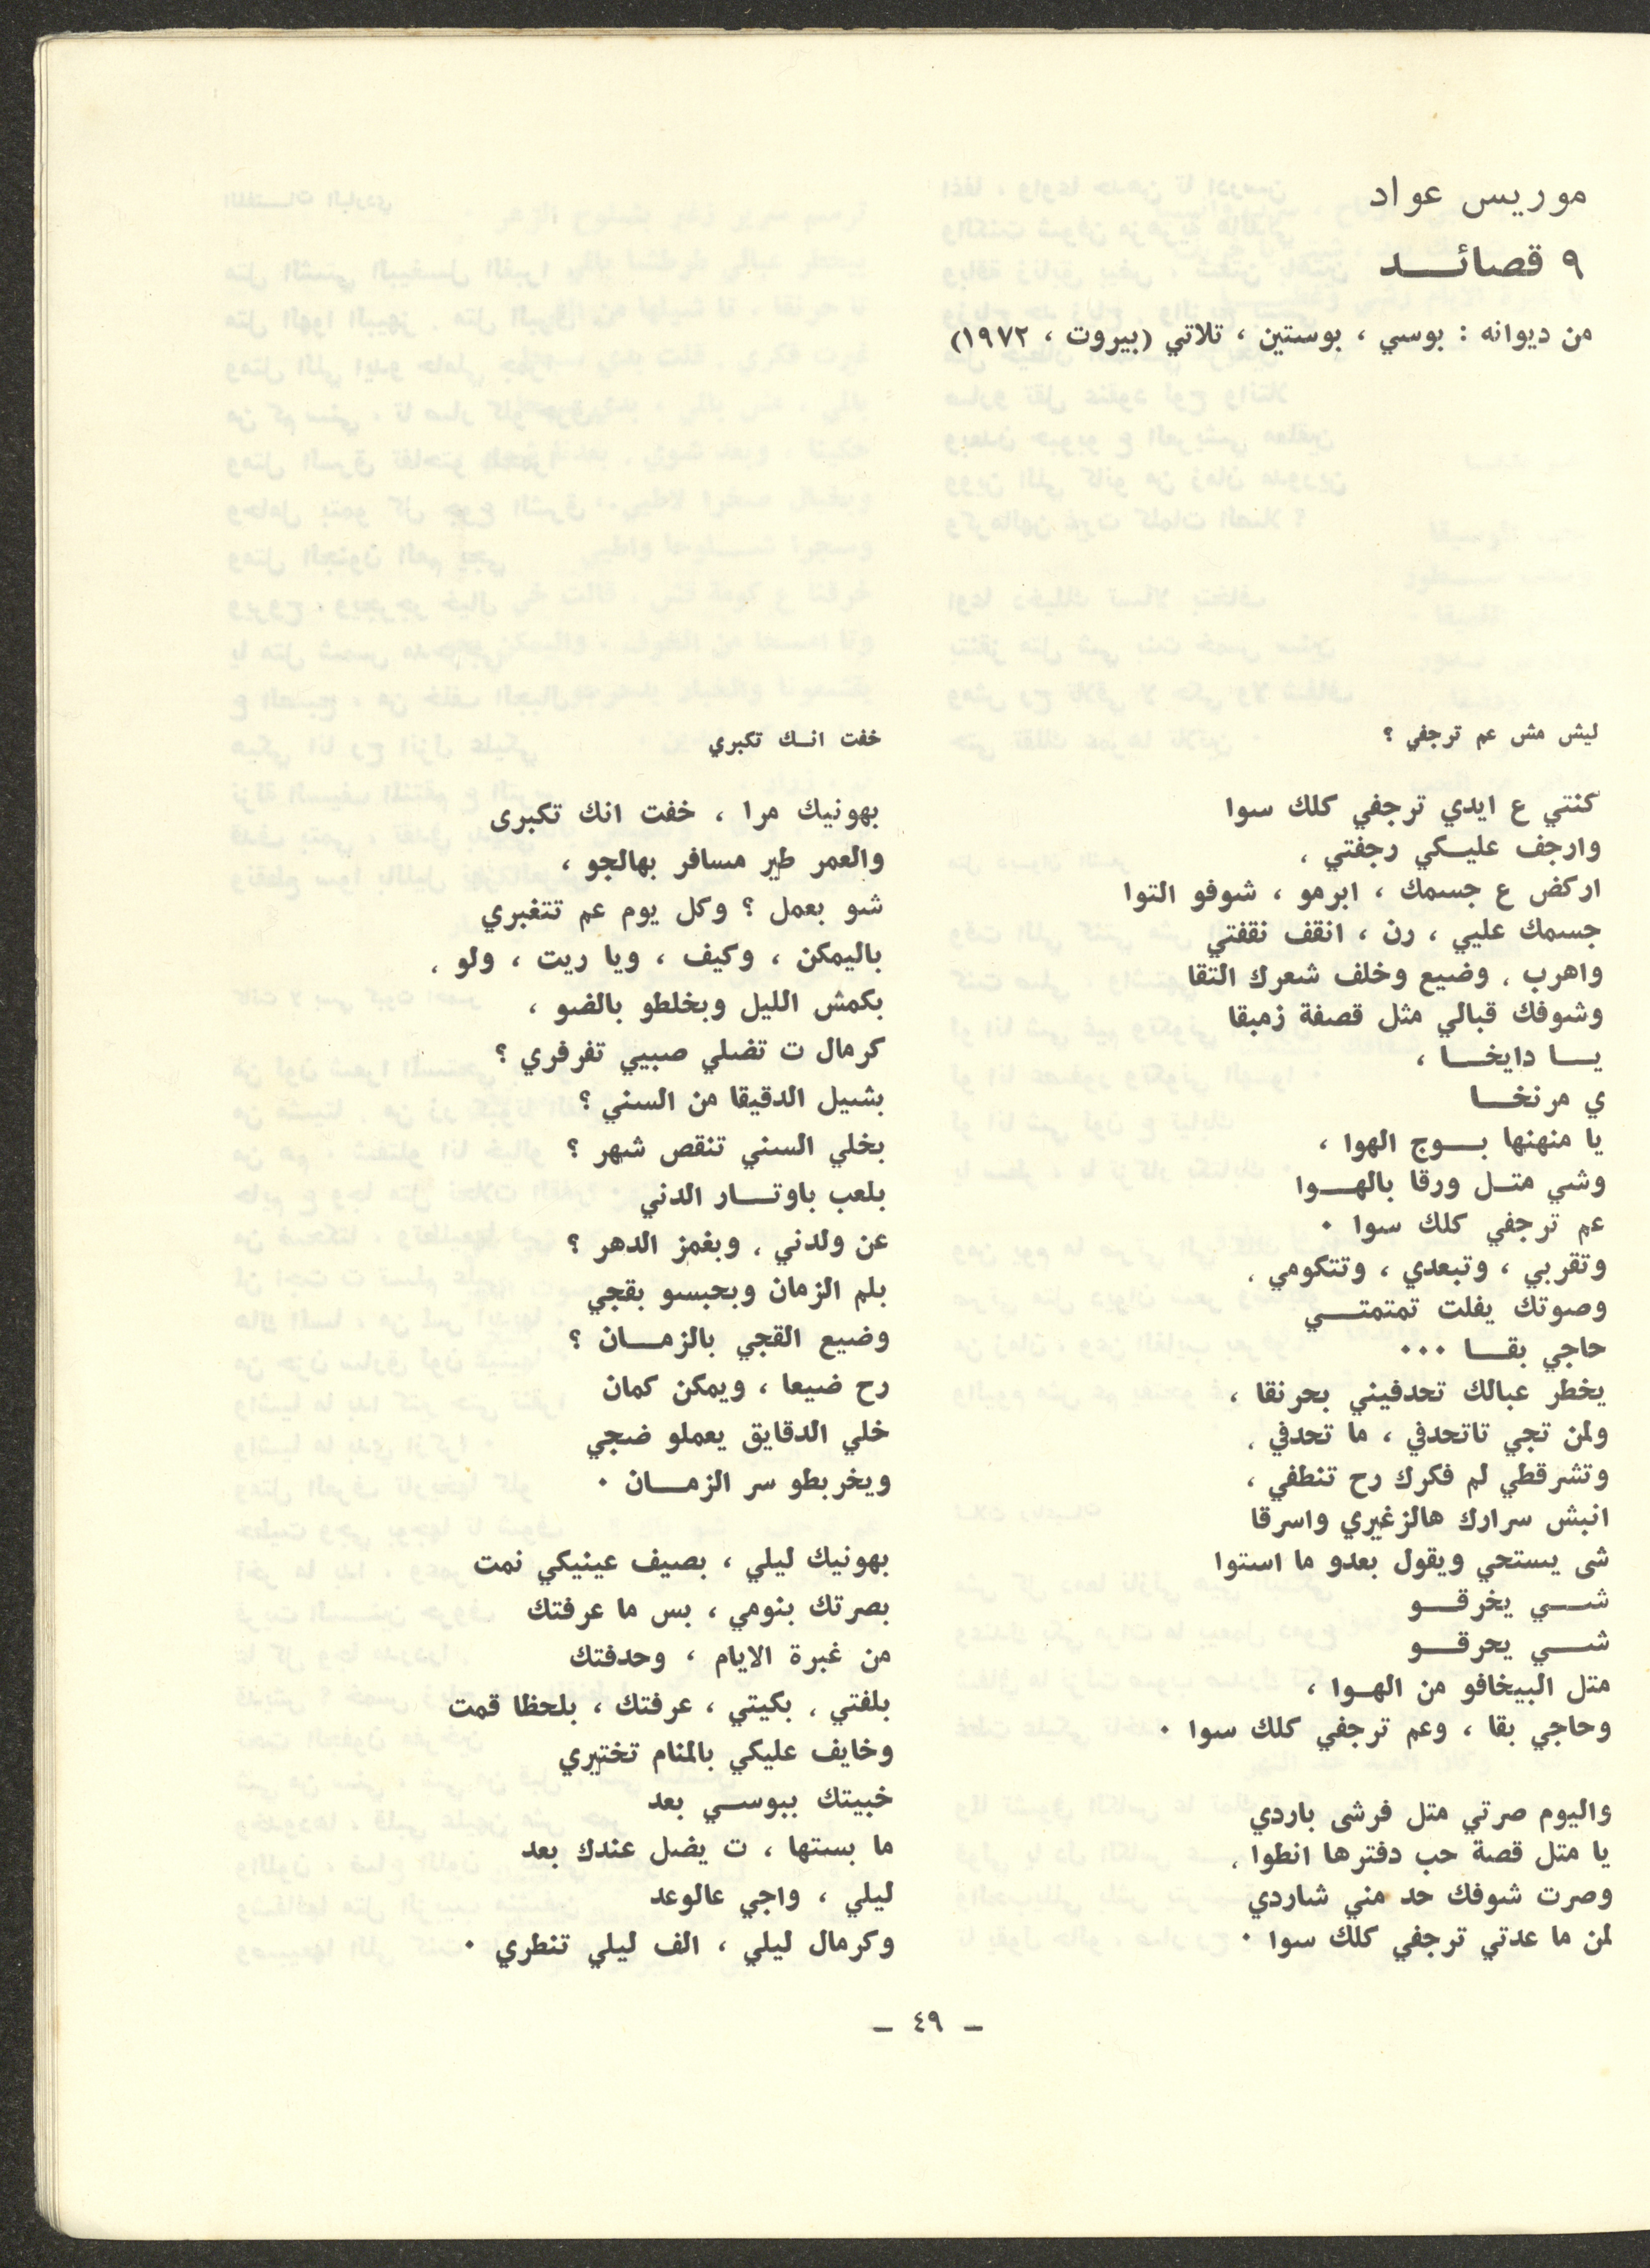 موريس عواد
٩ قصائــــد
من ديوانه : بوسي ، بوستين ، تلاتي (بيروت ، ١٩٧٢)
ليش مش عم ترجفي ؟
كنتي ع ايدي ترجفي كلك سوا
وارجف عليــكي رجفتي ،
اركض ع جسمك ، ابرمو ، شوفو التوا
جسمك عليي ، رن ، انقف نقفتي
واهرب ، وضيع وخلف شعرك التقا
وشوفك قبالي مثل قصفة زمبقا
يـــا دايخـــا ،
ي مرنخـــا
يا منهنها بـــوج الهوا ،
وشي متــل ورقا بالهـــوا
عم ترجفي كلك سوا ٠
وتقربي ، وتبعدي ، وتتكومي ،
وصوتك يفلت تمتمتـــي
حاجي بقـــا ٠٠٠
يخطر عبالك تحدفيني بحرنقا ،
ولمن تجي تاتحدفي ، ما تحدفي ،
وتشرقطي لم فكرك رح تنطفي ،
انبش سرارك هالزغيري واسرقا
شى يستحي ويقول بعدو ما استوا
شـــي يخرقـــو
شـــي يحرقـــو
متل البيخافو من الهــوا ،
وحاجي بقا ، وعم ترجفي كلك سوا ٠
واليوم صرتي متل فرشى باردي
يا متل قصة حب دفترها انطوا ،
وصرت شوفك حد مني شاردي
لمن ما عدتي ترجفي كلك سوا ٠
خفت انــك تكبري
بهونيك مرا ، خفت انك تكبرى
والعمر طير مسافر بهالجو ،
شو بعمل ؟ وكل يوم عم تتغبري
باليمكن ، وكيف ، ويا ريت ، ولو ،
بكمش الليل وبخلطو بالضو ،
كرمال ت تضلي صبيي تفرفري ؟
بشيل الدقيقا من السني ؟
بخلي السني تنقص شهر ؟
بلعب باوتـــار الدني
عن ولدني ، وبغمز الدهر ؟
بلم الزمان وبحبسو بقجي
وضيع القجي بالزمـــان ؟
رح ضيعا ، ويمكن كمان
خلي الدقايق يعملو ضجي
ويخربطو سر الزمـــان ٠
بهونيك ليلي ، بصيف عينيكي نمت
بصرتك بنومي ، بس ما عرفتك
من غبرة الايام ، وحدفتك
بلفتي ، بكيتي ، عرفتك ، بلحظا قمت
وخايف عليكي بالمنام تختيري
خبيتك ببوســي بعد
ما بستها ، ت يضل عندك بعد
ليلي ، واجي عالوعد
وكرمال ليلي ، الف ليلي تنطري ٠
— ٤٩ —